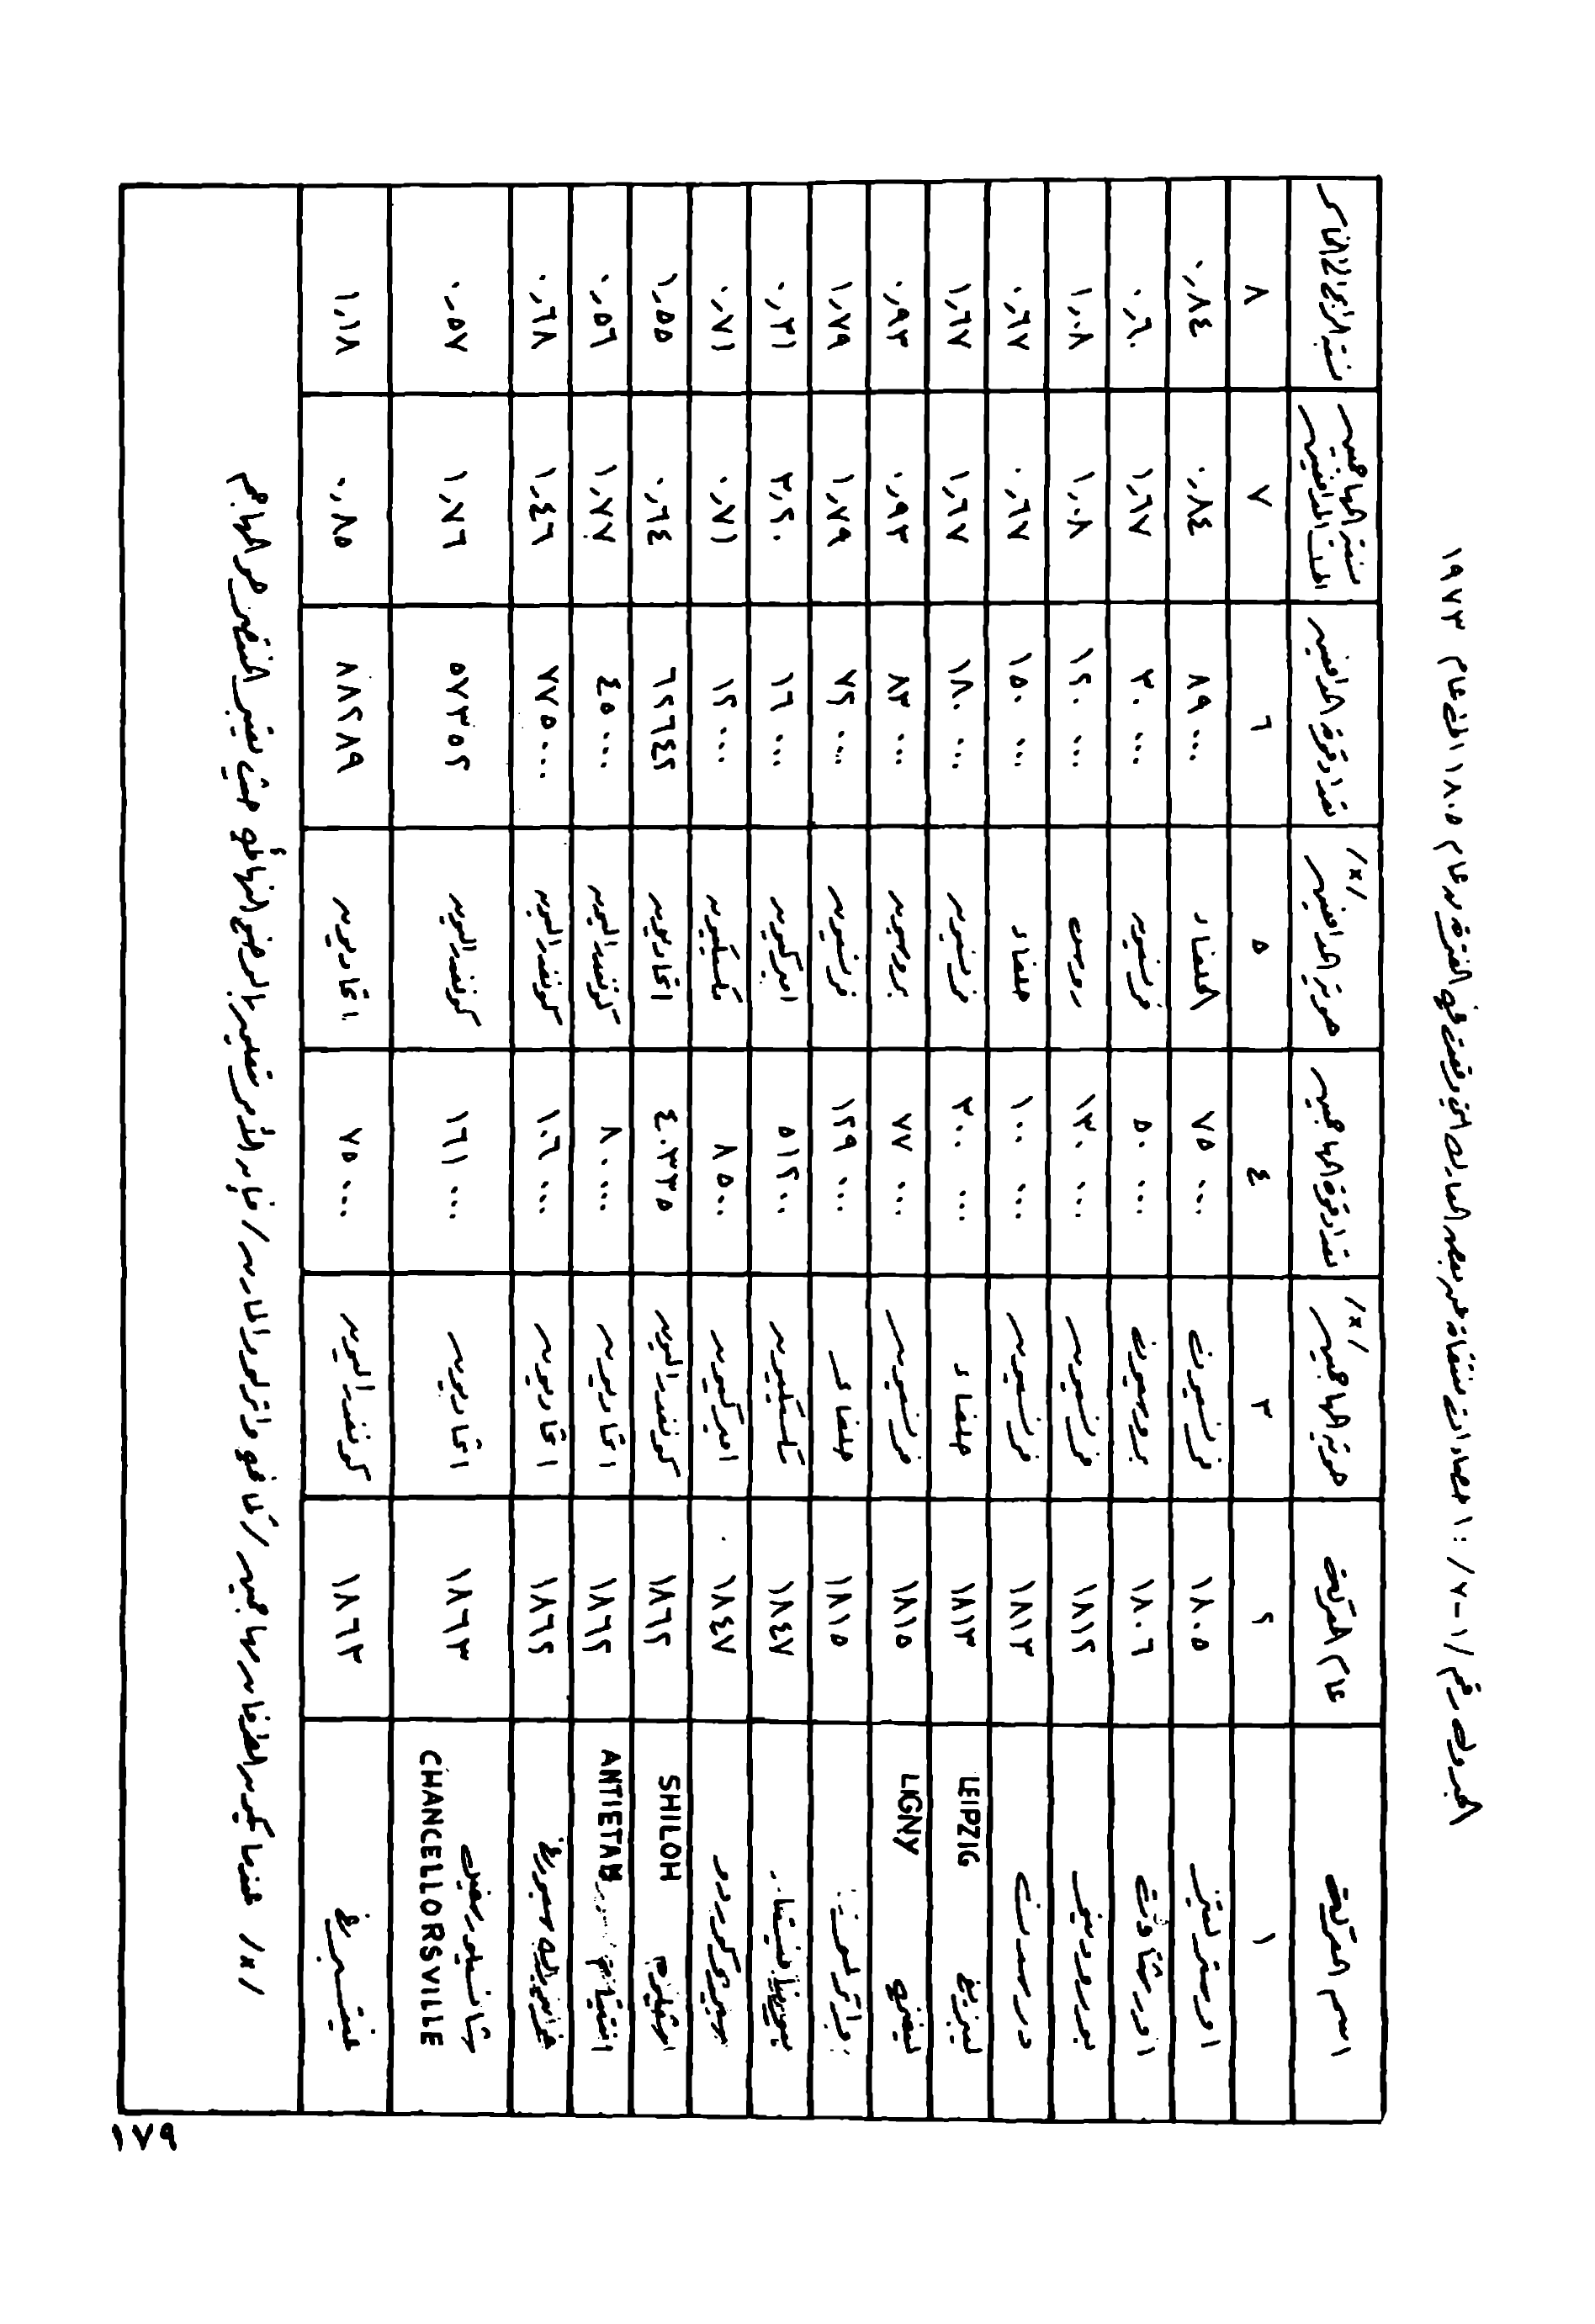 الجدول رقم /١-٧/ : احصاءات منتقاة عن بعض المعارك التي وقعت في الفترة من عام ١٨٠٥ الى عام ١٩٧٣
اسم المعركة | عام المعركة | هوية المهاجمين /x/ | تعداد قوة المهاجمين | هوية المدافعين /x/ | تعداد قوة المدافعين | نسبة المهاجمين الى المدافعين | نسبة الرابح الى الخاسر
١ | ٢ | ٣ | ٤ | ٥ | ٦ | ٧ | ٨
اوسترليتز | ١٨٠٥ | فرنسيون | ٧٥٠٠٠ | الحلفاء | ٨٩٠٠٠ | ٠,٨٤ | ٠,٨٤
اورشتادت | ١٨٠٦ | بروسيون | ٥٠٠٠٠ | فرنسيون | ٣٠٠٠٠ | ١,٦٧ | ٠,٦٠
بورودينو | ١٨١٢ | فرنسيون | ١٣٠٠٠٠ | روس | ١٢٠٠٠٠ | ١,٠٨ | ١,٠٨
درسدن | ١٨١٣ | فرنسيون | ١٠٠٠٠٠ | حلفاء | ١٥٠٠٠٠ | ٠,٦٧ | ٠,٦٧
ليبزيغ LEIPZIG | ١٨١٣ | حلفاء | ٣٠٠٠٠٠ | فرنسيون | ١٨٠٠٠٠ | ١,٦٧ | ١,٦٧
ليغني LIGNY | ١٨١٥ | فرنسيون | ٧٧٠٠٠ | بروسيون | ٨٣٠٠٠ | ٠,٩٣ | ٠,٩٣
واترلو | ١٨١٥ | حلفاء | ١٢٩٠٠٠ | فرنسيون | ٧٢٠٠٠ | ١,٧٩ | ١,٧٩
بوينا فيستا | ١٨٤٧ | مكسيكيون | ٥١٢٠٠ | اميركيون | ١٦٠٠٠ | ٣,٢٠ | ٠,٣١
١٨٤٧ | اميركيون | ٨٥٠٠ | مكسيكيون | ١٢٠٠٠ | ٠,٧١ | ٠,٧١
SHILOH | ١٨٦٢ | كونفدراليون | ٤٠٣٣٥ | اتحاديون | ٦٢٦٤٢ | ٠,٦٤ | ١,٥٥
انتيتام ANTIETAB | ١٨٦٢ | اتحاديون | ٨٠٠٠٠ | كونفدراليون | ٤٥٠٠٠ | ١,٧٧ | ٠,٥٦
١٨٦٢ | اتحاديون | ١٠٦٠٠٠ | كونفدراليون | ٧٧٥٠٠٠ | ١,٤٦ | ٠,٦٨
شانسيلورسفيل CHANCELLORSVILLE | ١٨٦٣ | اتحاديون | ١٦١٠٠٠ | كونفدراليون | ٥٧٣٥٢ | ١,٧٦ | ٠,٥٧
غيتسبرغ | ١٨٦٣ | كونفدراليون | ٧٥٠٠٠ | اتحاديون | ٨٨٢٨٩ | ٠,٨٥ | ١,١٨
/x/ عندما يكون الطرفان مهاجمين / كما في واترلو والمارن / فإن الأمر يتعلق بالوضع النهائي حيث يعتبر المنتصر هو المهاجم
١٧٩